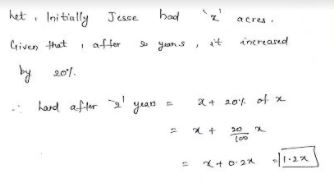 Let, Initially Jesse had 'x' acres.
Given that, after 2 years, it increased
by 20%.
∴ land after '2' years = x + 20% of x
= x + 20/100 x
= x + 0.2x = 1.2x